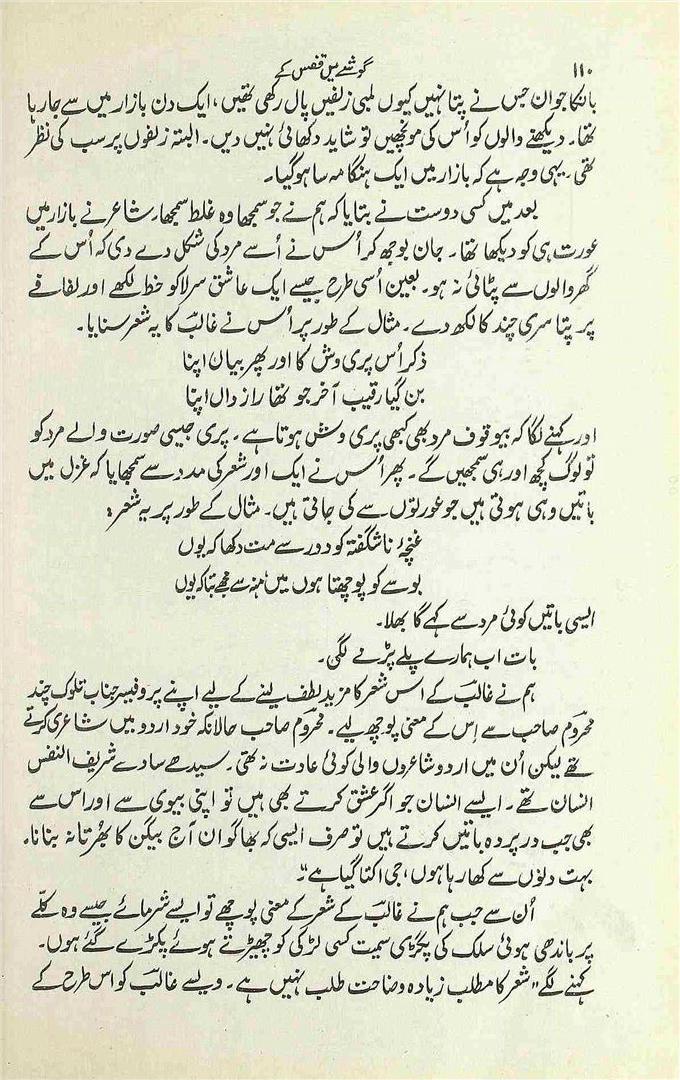 ۱۱۰
گوشے میں قفس کے
بانکا جوان جس نے پتا نہیں کیوں لمبی زلفیں پال رکھی تھیں، ایک دن بازار میں سے جا رہا
تھا۔ دیکھنے والوں کو اُس کی مونچھیں تو شاید دکھائی نہیں دیں۔ البتہ زلفوں پر سب کی نظر
تھی۔ یہی وجہ ہے کہ بازار میں ایک ہنگامہ سا ہو گیا۔
بعد میں کسی دوست نے بتایا کہ ہم نے جو سمجھا وہ غلط سمجھا، شاعر نے بازار میں
عورت ہی کو دیکھا تھا۔ جان بوجھ کر اُس نے اُسے مرد کی شکل دے دی کہ اُس کے
گھر والوں سے پٹائی نہ ہو۔ بعین اُسی طرح جیسے ایک عاشق سرلا کو خط لکھے اور لفافے
پر پتا سری چند کا لکھ دے۔ مثال کے طور پر اُس نے غالبؔ کا یہ شعر سنایا۔
ذکر اُس پری وش کا اور پھر بیاں اپنا
بن گیا رقیب آخر جو تھا راز داں اپنا
اور کہنے لگا کہ بیوقوف مرد بھی کبھی پری وش ہوتا ہے۔ پری جیسی صورت والے مرد کو
تو لوگ کچھ اور ہی سمجھیں گے۔ پھر اُس نے ایک اور شعر کی مدد سے سمجھایا کہ غزل میں
باتیں وہی ہوتی ہیں جو عورتوں سے کی جاتی ہیں۔ مثال کے طور پر یہ شعر:
غنچۂ ناشگفتہ کو دور سے مت دکھا کہ یوں
بوسے کو پوچھتا ہوں میں منہ سے مجھے بتا کہ یوں
ایسی باتیں کوئی مرد سے کہے گا بھلا۔
بات اب ہمارے پلے پڑنے لگی۔
ہم نے غالبؔ کے اس شعر کا مزید لطف لینے کے لیے اپنے پروفیسر جناب تلوک چند
محرومؔ صاحب سے اِس کے معنی پوچھ لیے۔ محرومؔ صاحب حالانکہ خود اردو میں شاعری کرتے
تھے لیکن اُن میں اردو شاعروں والی کوئی عادت نہ تھی۔ سیدھے سادے شریف النفس
انسان تھے۔ ایسے انسان جو اگر عشق کرتے بھی ہیں تو اپنی بیوی سے اور اس سے
بھی جب در پردہ باتیں کرتے ہیں تو صرف ایسی کہ بھاگوان آج بیگن کا بھُرتا نہ بنانا،
بہت دنوں سے کھا رہا ہوں، جی اکتا گیا ہے"۔
اُن سے جب ہم نے غالبؔ کے شعر کے معنی پوچھے تو ایسے شرمائے جیسے وہ کلّے
پر باندھی ہوئی سلک کی پگڑی سمیت کسی لڑکی کو چھیڑتے ہوئے پکڑے گئے ہوں۔
کہنے لگے "شعر کا مطلب زیادہ وضاحت طلب نہیں ہے۔ ویسے غالبؔ کو اس طرح کے